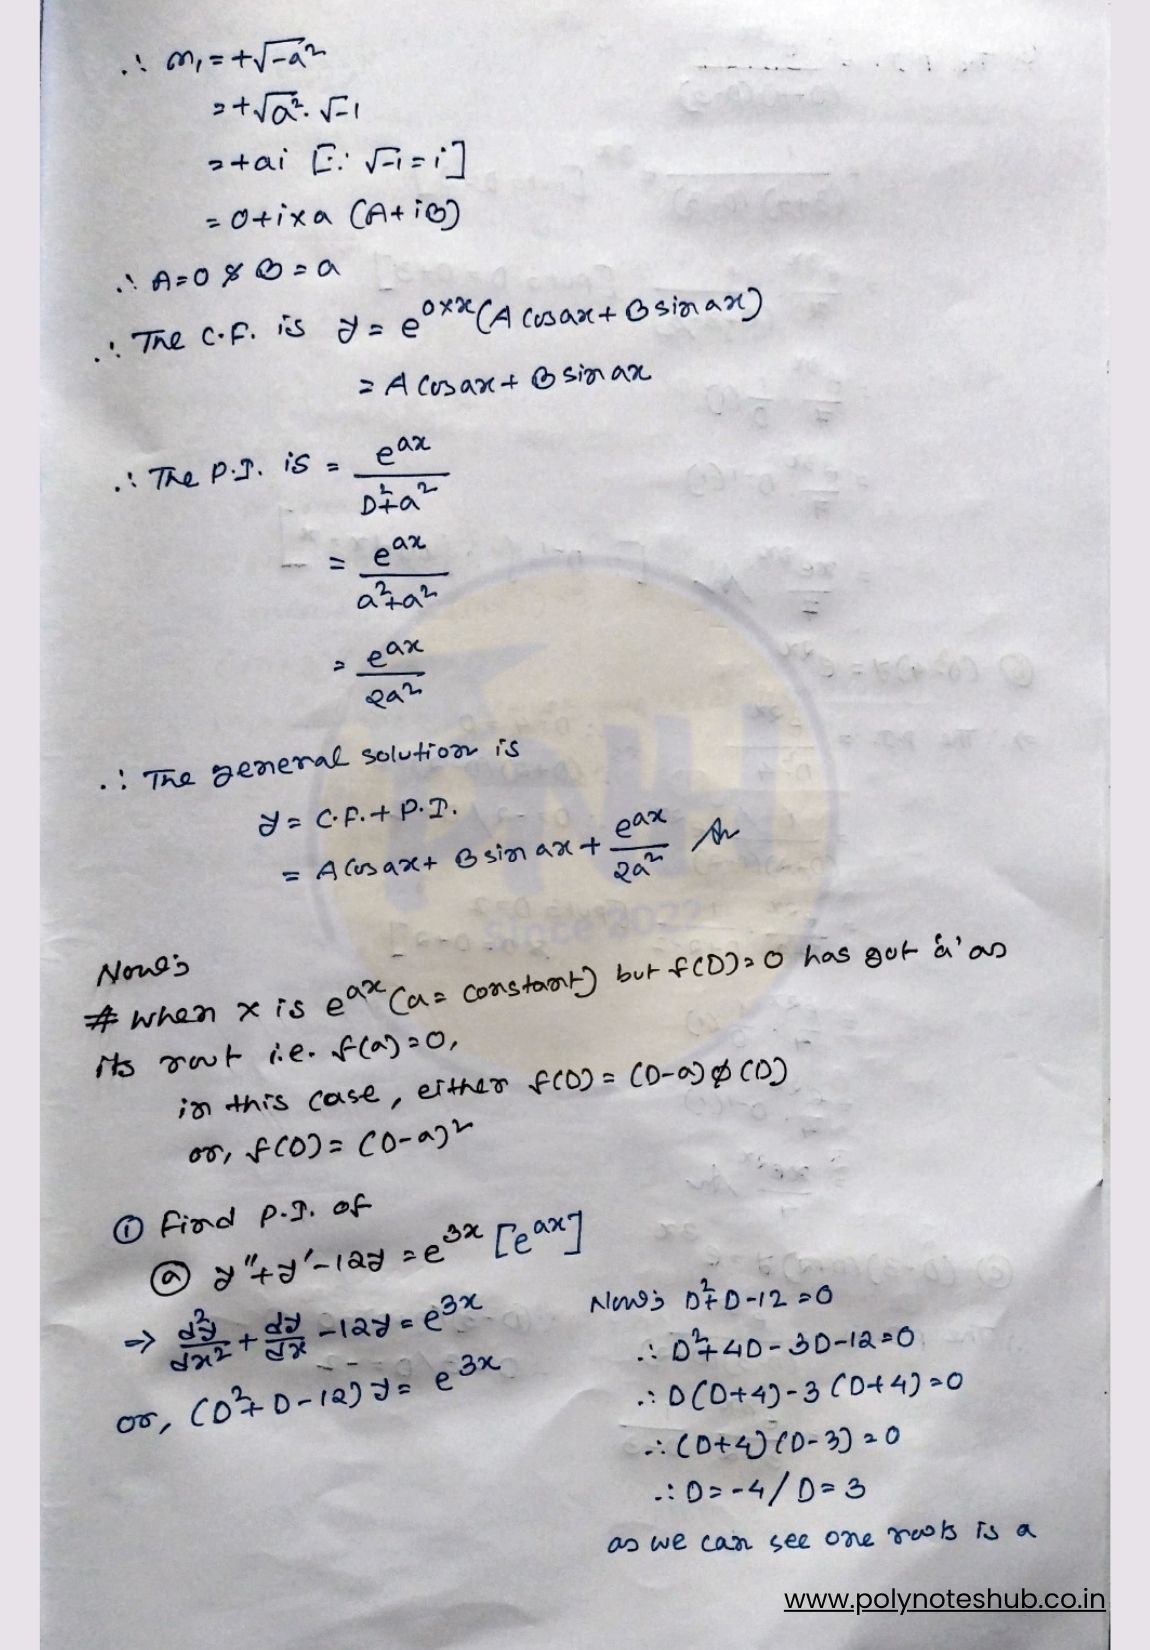 ∴ m₁ = +√-a²
= +√a². √-1
= +ai [∵ √-1 = i]
= 0+i×a (A+iB)
∴ A=0 & B=a
∴ The C.F. is y = e^0×x (A cosax + B sinax)
= A cosax + B sinax
∴ The P.I. is = e^ax / D²+a²
= e^ax / a²+a²
= e^ax / 2a²
∴ The general solution is
y = C.F. + P.I.
= A cosax + B sinax + e^ax / 2a² An
Since 2022
Now;
# When x is e^ax (a = constant) but f(D)=0 has got 'a' as
its root i.e. f(a)=0,
in this case, either f(D) = (D-a)φ(D)
or, f(D) = (D-a)²
① Find P.I. of
ⓐ y″+y′-12y = e^3x [e^ax]
⇒ d²y/dx² + dy/dx - 12y = e^3x
or, (D²+D-12)y = e^3x
Now; D²+D-12=0
∴ D²+4D-3D-12=0
∴ D(D+4)-3(D+4)=0
∴ (D+4)(D-3)=0
∴ D=-4/D=3
as we can see one roots is a
www.polynoteshub.co.in